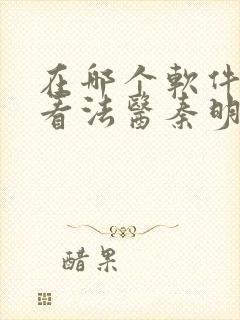 在哪个軟件
看法醫秦明
醋果